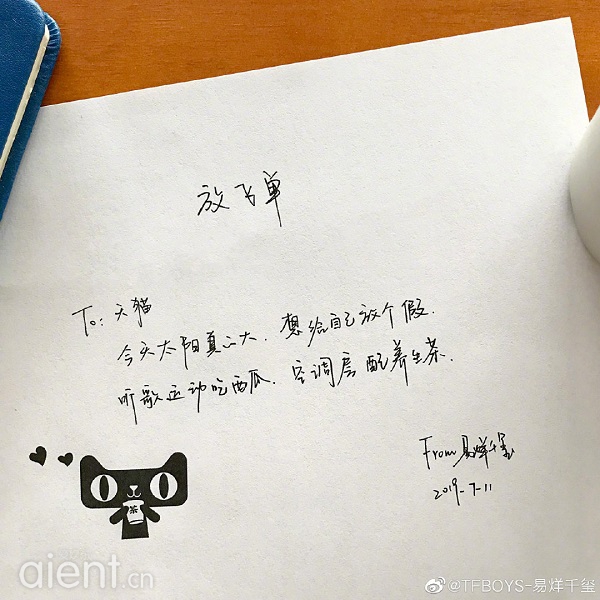 放飞单
To: 天猫
今天太阳真心大. 想给自己放个假.
听歌运动吃西瓜. 空调房配养生茶.
From 易烊千玺
2019-7-11
茶
aient.cn
@TFBOYS-易烊千玺